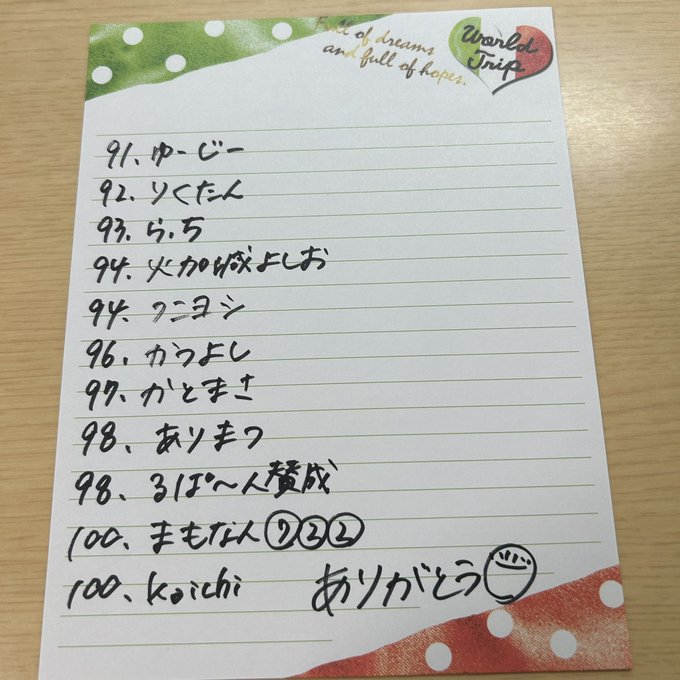 Full of dreams
and full of hopes.
World
Trip
91. ゆーじー
92. りくたん
93. らっち
94. 火加減よしお
94. クニヨシ
96. かつよし
97. かとまさ
98. ありまつ
98. るぱ〜ん賛成
100. まもなん⑦②②
100. koichi ありがとう